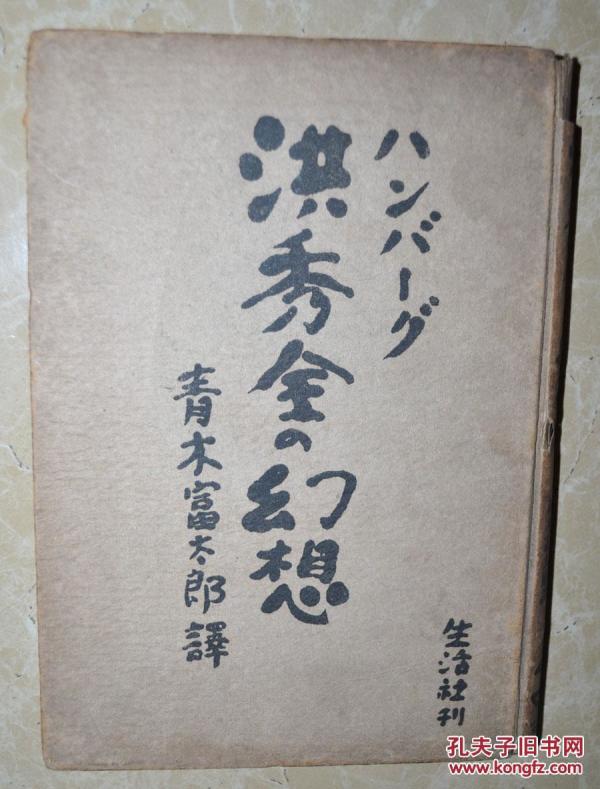 ハンバーグ
洪秀全の幻想
青木富太郎譯
生活社刊
孔夫子旧书网
www.kongfz.com